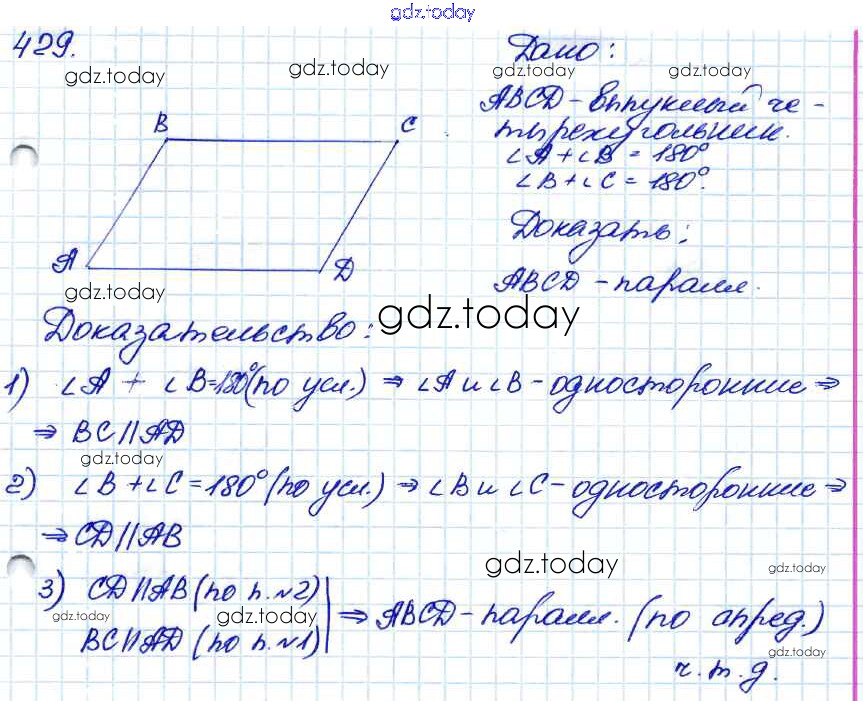 gdz.today
429.
Дано:
gdz.today gdz.today gdz.today gdz.today
ABCD - выпуклый че-
тырехугольник.
∠A + ∠B = 180°
∠B + ∠C = 180°.
B C
A D
Доказать:
ABCD - паралл.
gdz.today
Доказательство:
gdz.today
1) ∠A + ∠B = 180° (по усл.) ⇒ ∠A и ∠B - односторонние ⇒
⇒ BC || AD
gdz.today
2) ∠B + ∠C = 180° (по усл.) ⇒ ∠B и ∠C - односторонние ⇒
⇒ CD || AB
gdz.today gdz.today
3) CD || AB (по п. №2)
gdz.today gdz.today
BC || AD (по п. №1) ⇒ ABCD - паралл. (по опред.)
gdz.today
ч.т.д.